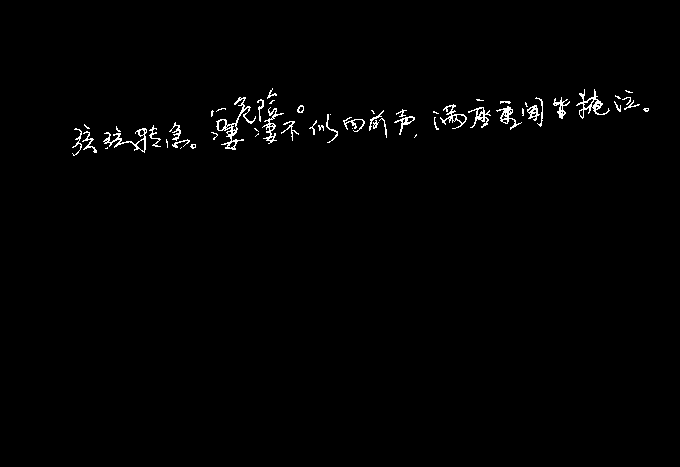 危险。
弦弦转急。凄凄不似向前声,满座重闻皆掩泣。